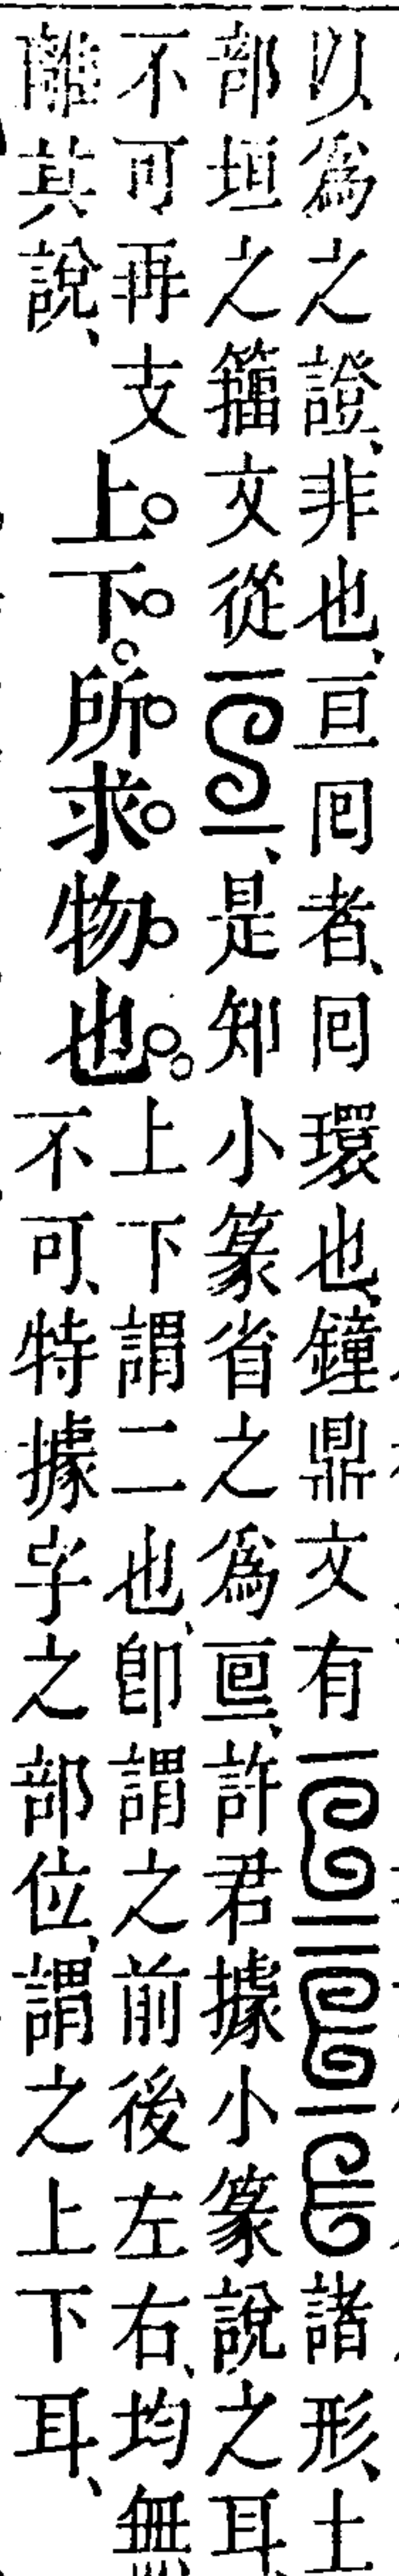 以爲之證、非也、亘囘者、囘環也、鐘鼎文有諸形、土
部垣之籕文從、是知小篆省之爲𠄢、許君據小篆說之耳、
不可再支
離其說、
上。下。所。求。物。也。
上下謂二也、卽謂之前後左右、均無
不可、特據字之部位、謂之上下耳、